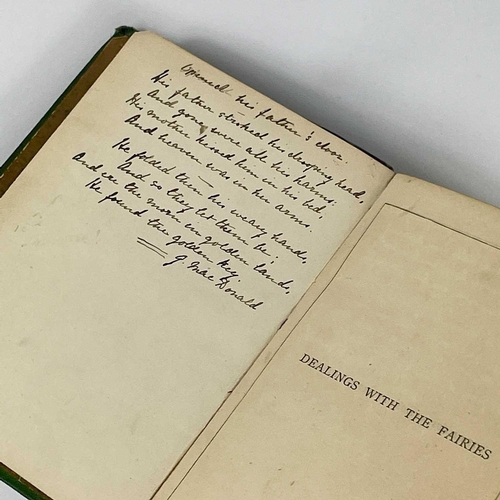 Opened his father's door.
His father stroked his drooping head,
And gone were all his harms:
His mother kissed him in his bed,
And heaven was in her arms.
He folded then his weary hands,
And so they let them be;
And ere the morn in golden lands,
He found the golden key.
G. Mac Donald
DEALINGS WITH THE FAIRIES